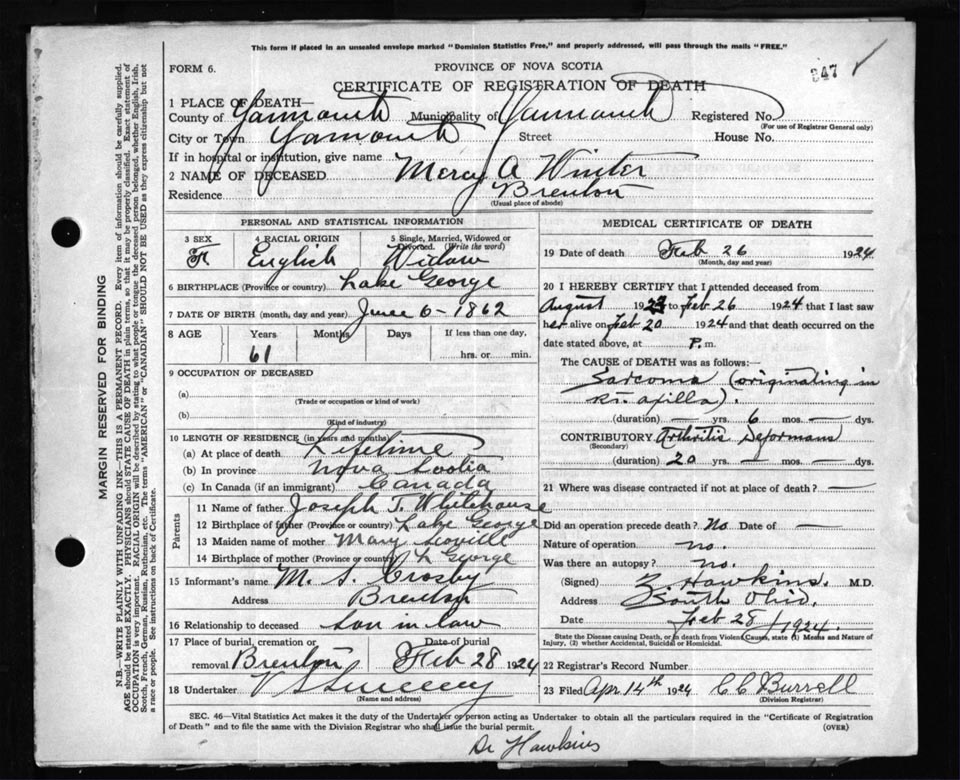 This form if placed in an unsealed envelope marked "Dominion Statistics Free," and properly addressed, will pass through the mails "FREE."
FORM 6.
PROVINCE OF NOVA SCOTIA
CERTIFICATE OF REGISTRATION OF DEATH
347
1 PLACE OF DEATH—
County of Yarmouth Municipality of Yarmouth Registered No.
(For use of Registrar General only)
City or Town Yarmouth Street House No.
If in hospital or institution, give name
2 NAME OF DECEASED Mercy A Winter
Residence Brenton
(Usual place of abode)
PERSONAL AND STATISTICAL INFORMATION
3 SEX 4 RACIAL ORIGIN 5 Single, Married, Widowed or Divorced. (Write the word)
F English Widow
6 BIRTHPLACE (Province or country) Lake George
7 DATE OF BIRTH (month, day and year) June 6 - 1862
8 AGE Years Months Days If less than one day,
61 hrs. or min.
9 OCCUPATION OF DECEASED
(a)
(Trade or occupation or kind of work)
(b)
(Kind of industry)
10 LENGTH OF RESIDENCE (in years and months)
(a) At place of death Lifetime
(b) In province Nova Scotia
(c) In Canada (if an immigrant) Canada
Parents
11 Name of father Joseph T. Whitehouse
12 Birthplace of father (Province or country) Lake George
13 Maiden name of mother Mary Scovill
14 Birthplace of mother (Province or country) L George
15 Informant's name M. S. Crosby
Address Brenton
16 Relationship to deceased Son in law
17 Place of burial, cremation or Date of burial
removal Brenton Feb 28 1924
18 Undertaker V S Sweeny
(Name and address)
MEDICAL CERTIFICATE OF DEATH
19 Date of death Feb 26 1924
(Month, day and year)
20 I HEREBY CERTIFY that I attended deceased from
August 1923 to Feb 26 1924 that I last saw
her alive on Feb 20 1924 and that death occurred on the
date stated above, at P. m.
The CAUSE of DEATH was as follows:
Sarcoma (originating in
rt. axilla).
(duration) — yrs. 6 mos. — dys.
CONTRIBUTORY Arthritis Deformans
(duration) 20 yrs. — mos. — dys.
21 Where was disease contracted if not at place of death? —
Did an operation precede death? No Date of —
Nature of operation no.
Was there an autopsy? no.
(Signed) Z Hawkins. M.D.
Address South Ohio.
Date Feb 28 / 1924.
State the Disease causing Death, or in death from Violent Causes, state (1) Means and Nature of
Injury, (2) whether Accidental, Suicidal or Homicidal.
22 Registrar's Record Number
23 Filed Apr 14th 1924 C C Burrell
(Division Registrar)
SEC. 46—Vital Statistics Act makes it the duty of the Undertaker or person acting as Undertaker to obtain all the particulars required in the "Certificate of Registration
of Death" and to file the same with the Division Registrar who shall issue the burial permit. (OVER)
Dr Hawkins
MARGIN RESERVED FOR BINDING
N.B.—WRITE PLAINLY WITH UNFADING INK—THIS IS A PERMANENT RECORD. Every item of information should be carefully supplied.
AGE should be stated EXACTLY. PHYSICIANS should STATE CAUSE OF DEATH in plain terms, so that it may be properly classified. Exact statement of
OCCUPATION is very important. RACIAL ORIGIN will be described by stating to what people or tongue the deceased person belonged, whether English, Irish,
Scotch, French, German, Russian, Ruthenian, etc. The terms "AMERICAN" or "CANADIAN" SHOULD NOT BE USED as they express citizenship but not
a race or people. See instructions on back of Certificate.